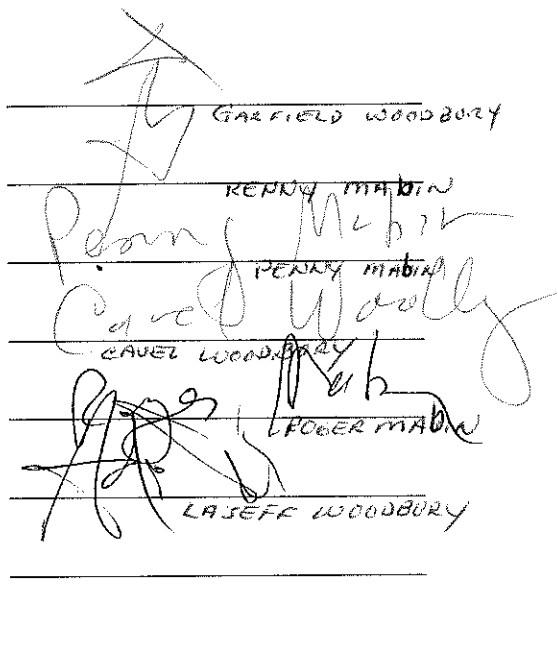 GARFIELD WOODBURY
KENNY MABIN
Penny Mabin
PENNY MABIN
Carel Woodby
CAVEL WOODBURY
ROGER MABIN
LASEFF WOODBURY